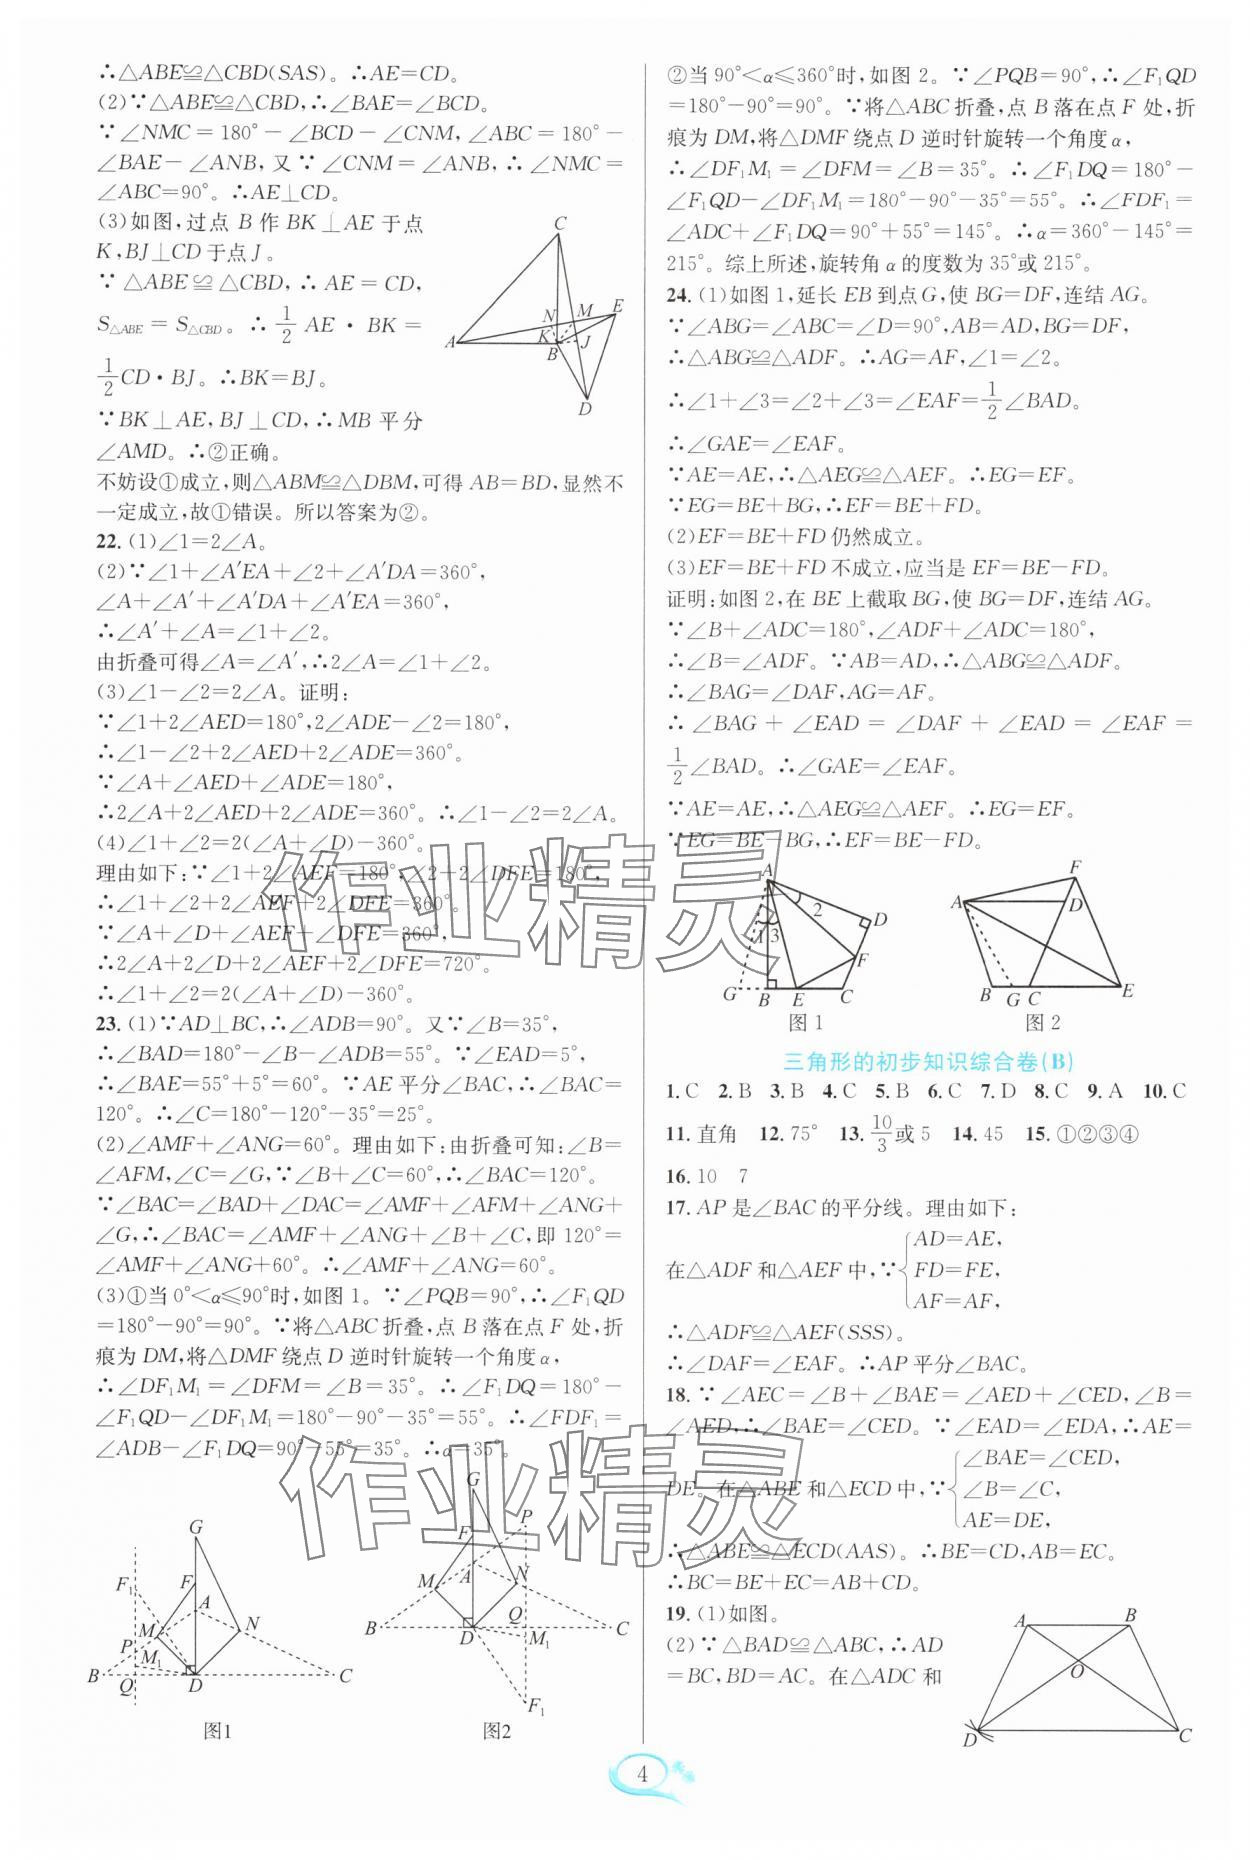 ∴△ABE≌△CBD(SAS)。∴AE=CD。
(2)∵△ABE≌△CBD,∴∠BAE=∠BCD。
∵∠NMC=180°-∠BCD-∠CNM,∠ABC=180°-
∠BAE-∠ANB,又∵∠CNM=∠ANB,∴∠NMC=
∠ABC=90°。∴AE⊥CD。
(3)如图,过点B作BK⊥AE于点
K,BJ⊥CD于点J。
∵△ABE≌△CBD,∴AE=CD,
S△ABE=S△CBD。∴1/2 AE·BK=
1/2 CD·BJ。∴BK=BJ。
∵BK⊥AE,BJ⊥CD,∴MB平分
∠AMD。∴②正确。
不妨设①成立,则△ABM≌△DBM,可得AB=BD,显然不
一定成立,故①错误。所以答案为②。
C
N M E
K
A B J
D
22.(1)∠1=2∠A。
(2)∵∠1+∠A′EA+∠2+∠A′DA=360°,
∠A+∠A′+∠A′DA+∠A′EA=360°,
∴∠A′+∠A=∠1+∠2。
由折叠可得∠A=∠A′,∴2∠A=∠1+∠2。
(3)∠1-∠2=2∠A。证明:
∵∠1+2∠AED=180°,2∠ADE-∠2=180°,
∴∠1-∠2+2∠AED+2∠ADE=360°。
∵∠A+∠AED+∠ADE=180°,
∴2∠A+2∠AED+2∠ADE=360°。∴∠1-∠2=2∠A。
(4)∠1+∠2=2(∠A+∠D)-360°。
理由如下:∵∠1+2∠AEF=180°,∠2+2∠DFE=180°,
∴∠1+∠2+2∠AEF+2∠DFE=360°。
∵∠A+∠D+∠AEF+∠DFE=360°,
∴2∠A+2∠D+2∠AEF+2∠DFE=720°。
∴∠1+∠2=2(∠A+∠D)-360°。
23.(1)∵AD⊥BC,∴∠ADB=90°。又∵∠B=35°,
∴∠BAD=180°-∠B-∠ADB=55°。∵∠EAD=5°,
∴∠BAE=55°+5°=60°。∵AE平分∠BAC,∴∠BAC=
120°。∴∠C=180°-120°-35°=25°。
(2)∠AMF+∠ANG=60°。理由如下:由折叠可知:∠B=
∠AFM,∠C=∠G,∵∠B+∠C=60°,∴∠BAC=120°。
∵∠BAC=∠BAD+∠DAC=∠AMF+∠AFM+∠ANG+
∠G,∴∠BAC=∠AMF+∠ANG+∠B+∠C,即120°=
∠AMF+∠ANG+60°。∴∠AMF+∠ANG=60°。
(3)①当0°<α≤90°时,如图1。∵∠PQB=90°,∴∠F₁QD
=180°-90°=90°。∵将△ABC折叠,点B落在点F处,折
痕为DM,将△DMF绕点D逆时针旋转一个角度α,
∴∠DF₁M₁=∠DFM=∠B=35°。∴∠F₁DQ=180°-
∠F₁QD-∠DF₁M₁=180°-90°-35°=55°。∴∠FDF₁=
∠ADB-∠F₁DQ=90°-55°=35°。∴α=35°。
G
F₁ F
A
M N
P M₁
B Q D C
图1
G
P
F
A
M N
Q
B D M₁ C
F₁
图2
②当90°<α≤360°时,如图2。∵∠PQB=90°,∴∠F₁QD
=180°-90°=90°。∵将△ABC折叠,点B落在点F处,折
痕为DM,将△DMF绕点D逆时针旋转一个角度α,
∴∠DF₁M₁=∠DFM=∠B=35°。∴∠F₁DQ=180°-
∠F₁QD-∠DF₁M₁=180°-90°-35°=55°。∴∠FDF₁=
∠ADC+∠F₁DQ=90°+55°=145°。∴α=360°-145°=
215°。综上所述,旋转角α的度数为35°或215°。
24.(1)如图1,延长EB到点G,使BG=DF,连结AG。
∵∠ABG=∠ABC=∠D=90°,AB=AD,BG=DF,
∴△ABG≌△ADF。∴AG=AF,∠1=∠2。
∴∠1+∠3=∠2+∠3=∠EAF=1/2∠BAD。
∴∠GAE=∠EAF。
∵AE=AE,∴△AEG≌△AEF。∴EG=EF。
∵EG=BE+BG,∴EF=BE+FD。
(2)EF=BE+FD仍然成立。
(3)EF=BE+FD不成立,应当是EF=BE-FD。
证明:如图2,在BE上截取BG,使BG=DF,连结AG。
∵∠B+∠ADC=180°,∠ADF+∠ADC=180°,
∴∠B=∠ADF。∵AB=AD,∴△ABG≌△ADF。
∴∠BAG=∠DAF,AG=AF。
∴∠BAG+∠EAD=∠DAF+∠EAD=∠EAF=
1/2∠BAD。∴∠GAE=∠EAF。
∵AE=AE,∴△AEG≌△AEF。∴EG=EF。
∵EG=BE-BG,∴EF=BE-FD。
A
2 D
1 3
F
G B E C
图1
F
A D
B G C E
图2
三角形的初步知识综合卷(B)
1.C 2.B 3.B 4.C 5.B 6.C 7.D 8.C 9.A 10.C
11.直角 12.75° 13.10/3或5 14.45 15.①②③④
16.10 7
17.AP是∠BAC的平分线。理由如下:
在△ADF和△AEF中,∵{AD=AE,
FD=FE,
AF=AF,
∴△ADF≌△AEF(SSS)。
∴∠DAF=∠EAF。∴AP平分∠BAC。
18.∵∠AEC=∠B+∠BAE=∠AED+∠CED,∠B=
∠AED,∴∠BAE=∠CED。∵∠EAD=∠EDA,∴AE=
DE。在△ABE和△ECD中,∵{∠BAE=∠CED,
∠B=∠C,
AE=DE,
∴△ABE≌△ECD(AAS)。∴BE=CD,AB=EC。
∴BC=BE+EC=AB+CD。
19.(1)如图。
(2)∵△BAD≌△ABC,∴AD
=BC,BD=AC。在△ADC和
A B
O
D C
作业精灵
作业精灵
4